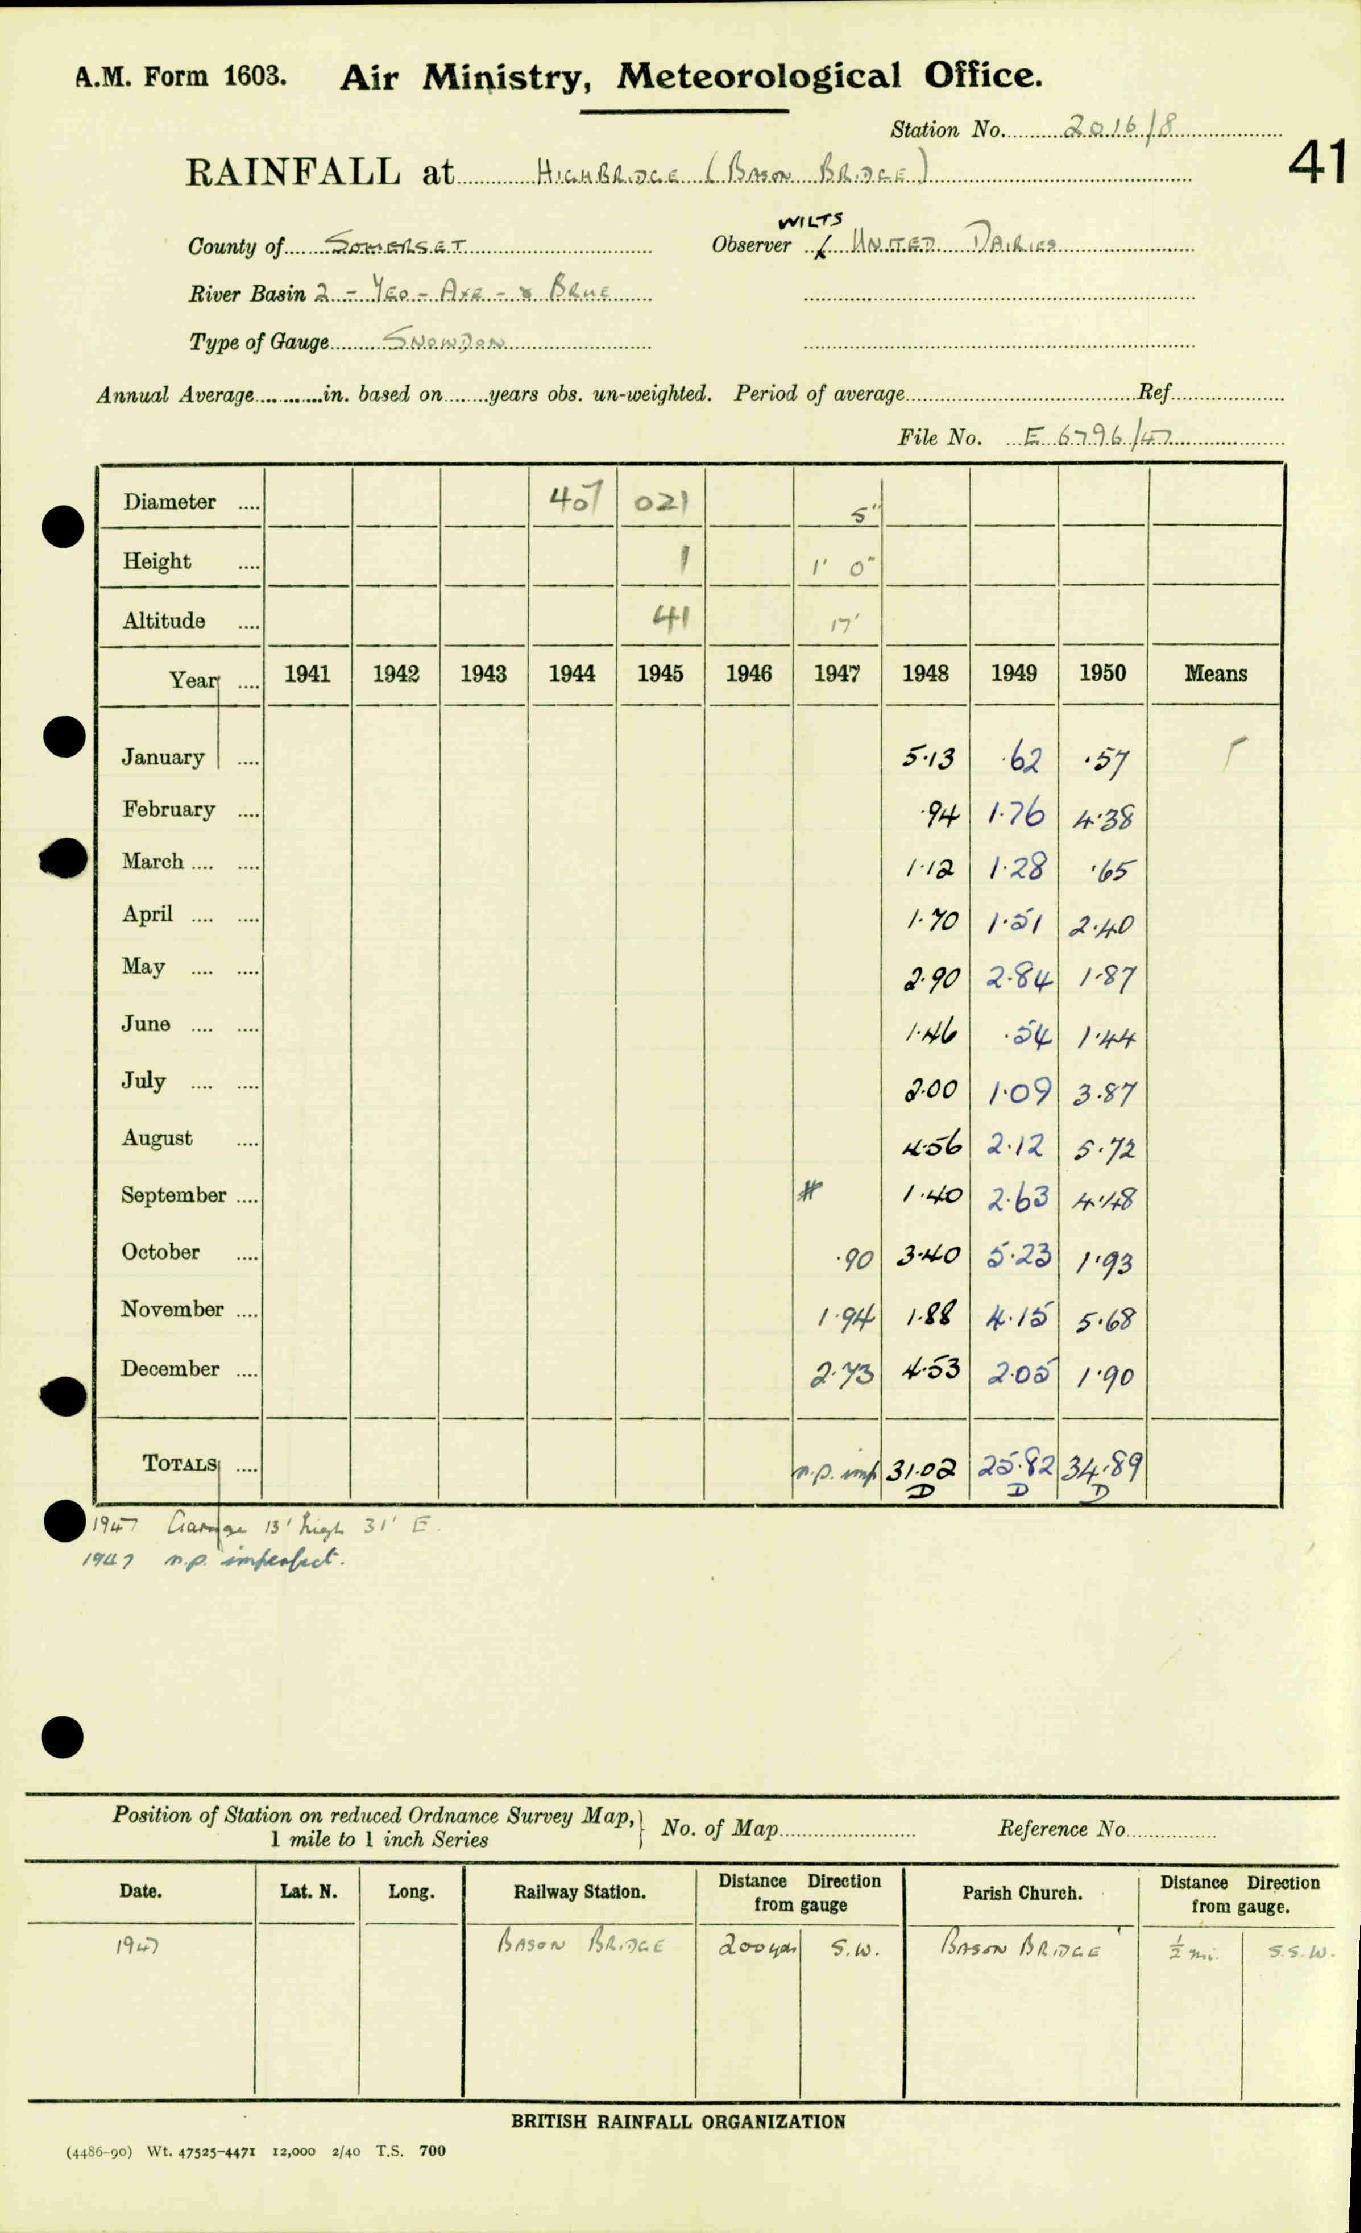 A.M. Form 1603. Air Ministry, Meteorological Office.
Station No. 2016/8
41
RAINFALL at HIGHBRIDGE (BASON BRIDGE)
WILTS
County of SOMERSET Observer UNITED DAIRIES
River Basin 2 - YEO - AXE - & BRUE
Type of Gauge SNOWDON
Annual Average in. based on years obs. un-weighted. Period of average Ref
File No. E 6796/47
Diameter .... 407 021 5"
Height .... 1 1' 0"
Altitude .... 41 17'
Year .... 1941 1942 1943 1944 1945 1946 1947 1948 1949 1950 Means
January .... 5.13 .62 .57
February .... .94 1.76 4.38
March .... .... 1.12 1.28 .65
April .... .... 1.70 1.51 2.40
May .... .... 2.90 2.84 1.87
June .... .... 1.46 .54 1.44
July .... .... 2.00 1.09 3.87
August .... 4.56 2.12 5.72
September .... # 1.40 2.63 4.48
October .... .90 3.40 5.23 1.93
November .... 1.94 1.88 4.15 5.68
December .... 2.73 4.53 2.05 1.90
TOTALS .... n.p. imp 31.02 25.82 34.89
D D D
1947 Garage 13' high 31' E.
1947 n.p. imperfect.
Position of Station on reduced Ordnance Survey Map,} No. of Map Reference No.
1 mile to 1 inch Series
Date. Lat. N. Long. Railway Station. Distance Direction from gauge Parish Church. Distance Direction from gauge.
1947 BASON BRIDGE 200 yds S.W. BASON BRIDGE ½ mi. S.S.W.
BRITISH RAINFALL ORGANIZATION
(4486-90) Wt. 47525-4471 12,000 2/40 T.S. 700